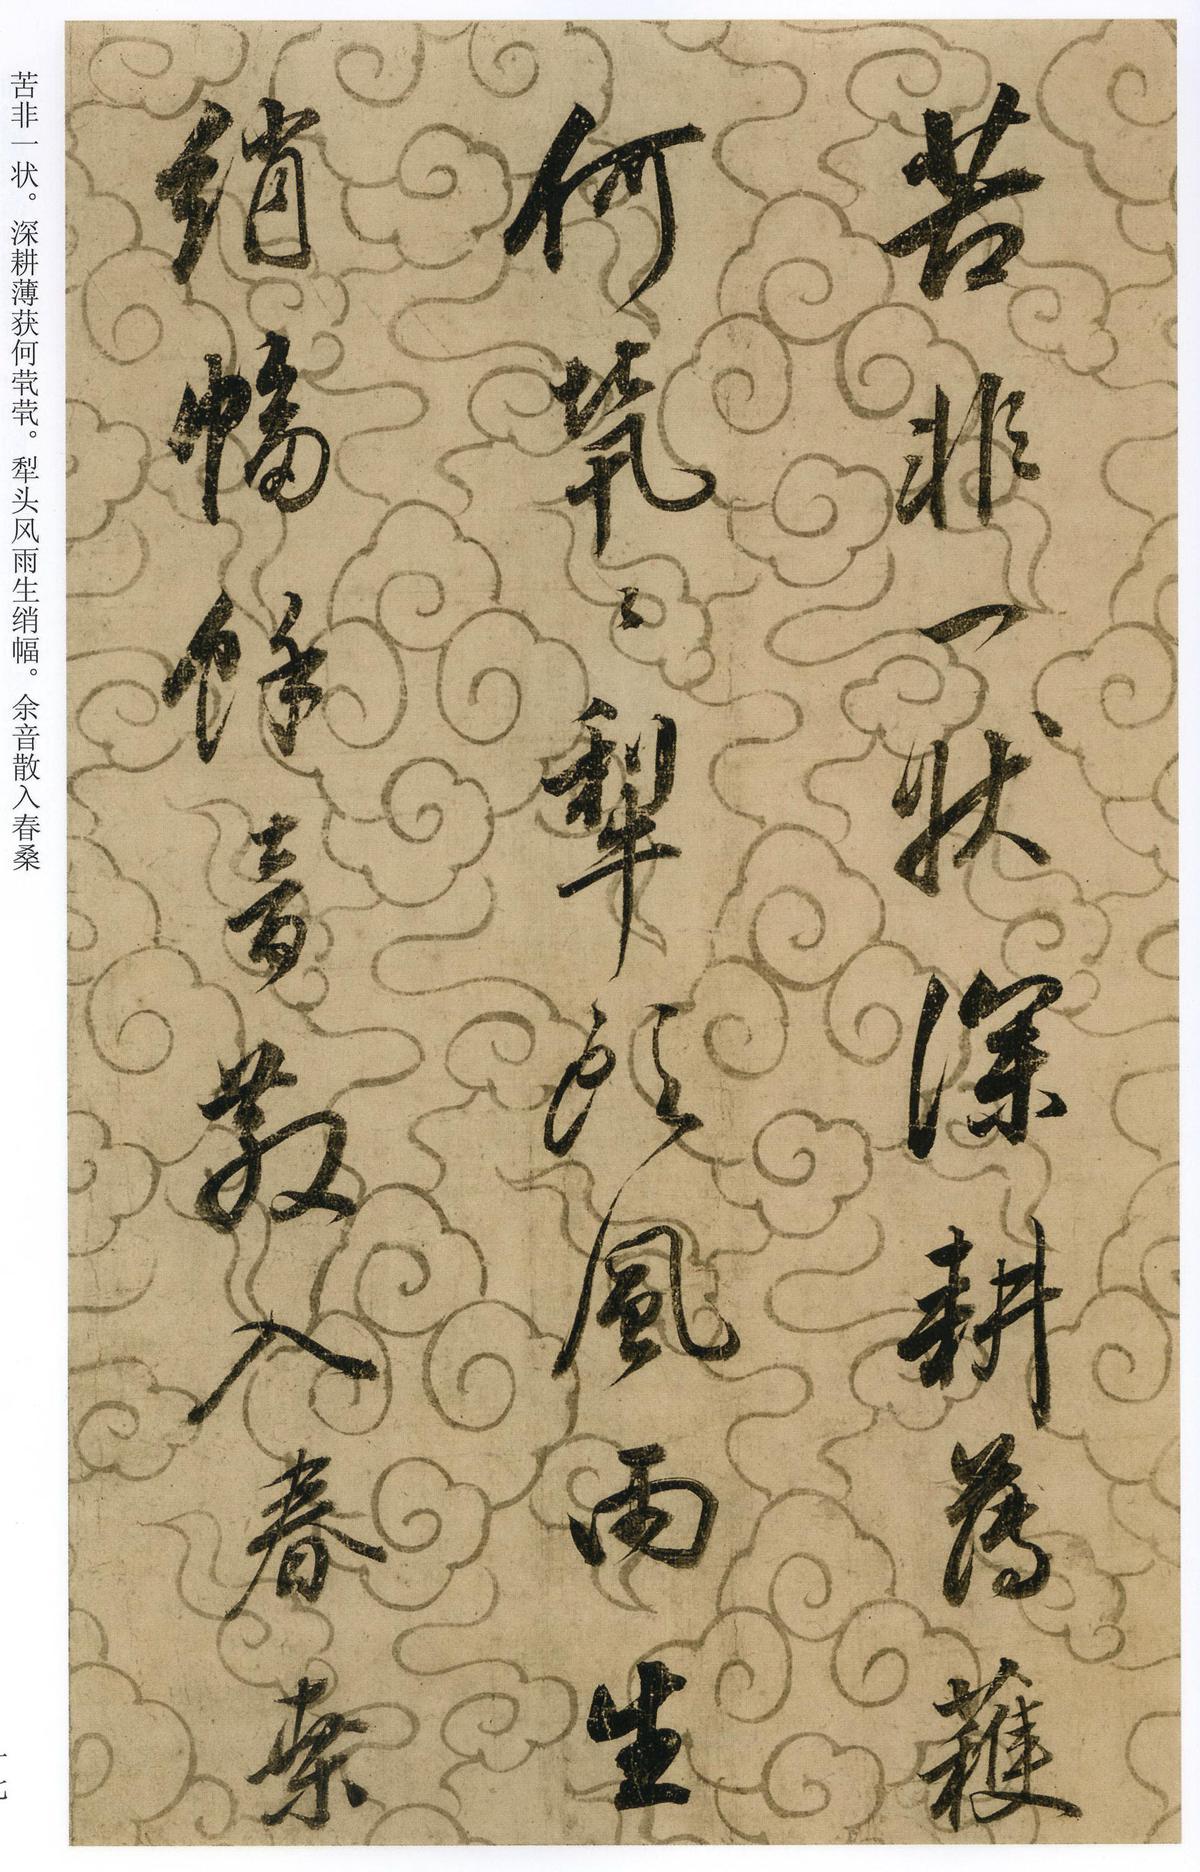 苦非一状深耕薄穫
何煢〻犁頭風雨生
綃幅餘音散入春桒
苦非一状。深耕薄获何茕茕。犁头风雨生绡幅。余音散入春桑
十七